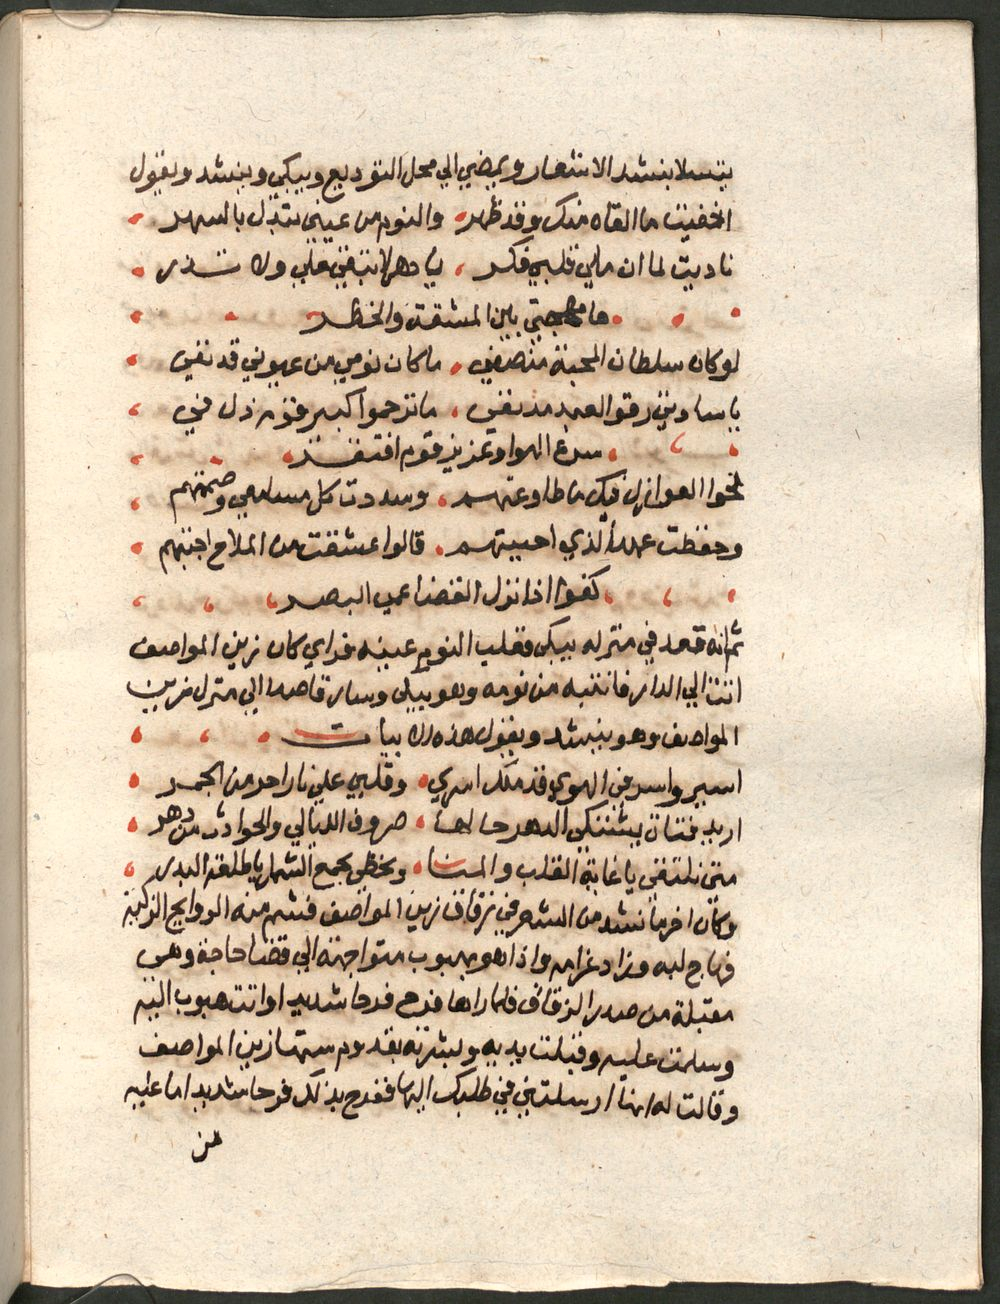 يتسلا بنشد الاشعار ويمضي الي محل التوديع ويبكي وينشد ويقول
اخفيت ما القاه منك وقد ظهر والنوم من عيني تبدل بالسهر
ناديت لما ان ملي قلبي فكر يا دهر لا تبقي علي ولا تذر
ها مهجتي بين المشقة والخطر
لو كان سلطان المحبة منصفي ما كان نومي من عيوني قد نفي
يا سادتي رقوا لعبد مدنفي ما ترحموا كبير قوم ذل في
شرع الهوا وعزيز قوم افتقر
لحوا العوازل فيك ما طاوعتهم وسددت كل مسامعي وصممتهم
وحفظت عهد الذي احببتهم قالوا عشقت من الملاح اجبتهم
كفوا اذا نزل القضا عمي البصر
ثم انه قعد في منزله يبكي فغلب النوم عينه فراي كان زين المواصف
اتت الي الدار فانتبه من نومه وهو يبكي وسار قاصدا الي منزل زين
المواصف وهو ينشد ويقول هذه الابيات
اسير واسر في الهوي قد ملك اسري وقلبي علي نار احر من الجمر
اريد فتاة يشتكي الدهر حالها صروف الليالي والحوادث من دهر
متي نلتقي يا غاية القلب والمنا ونحظي بجمع الشمل يا طلعة البدر
وكان اخر ما نشد من الشعر في زقاق زين المواصف فشم منه الروايح الزكية
فهاج لبه وزاد غرامه واذا هو بهبوب متواجهة الي قضا حاجة وهي
مقبلة من صدر الزقاق فلما راها فرح فرحا شديد او اتت هبوب اليه
وسلمت عليه وقبلت يديه وبشرته بقدوم ستها زين المواصف
وقالت له انها ارسلتني في طلبك اليها ففرح بذلك فرحا شديد اما عليه
من